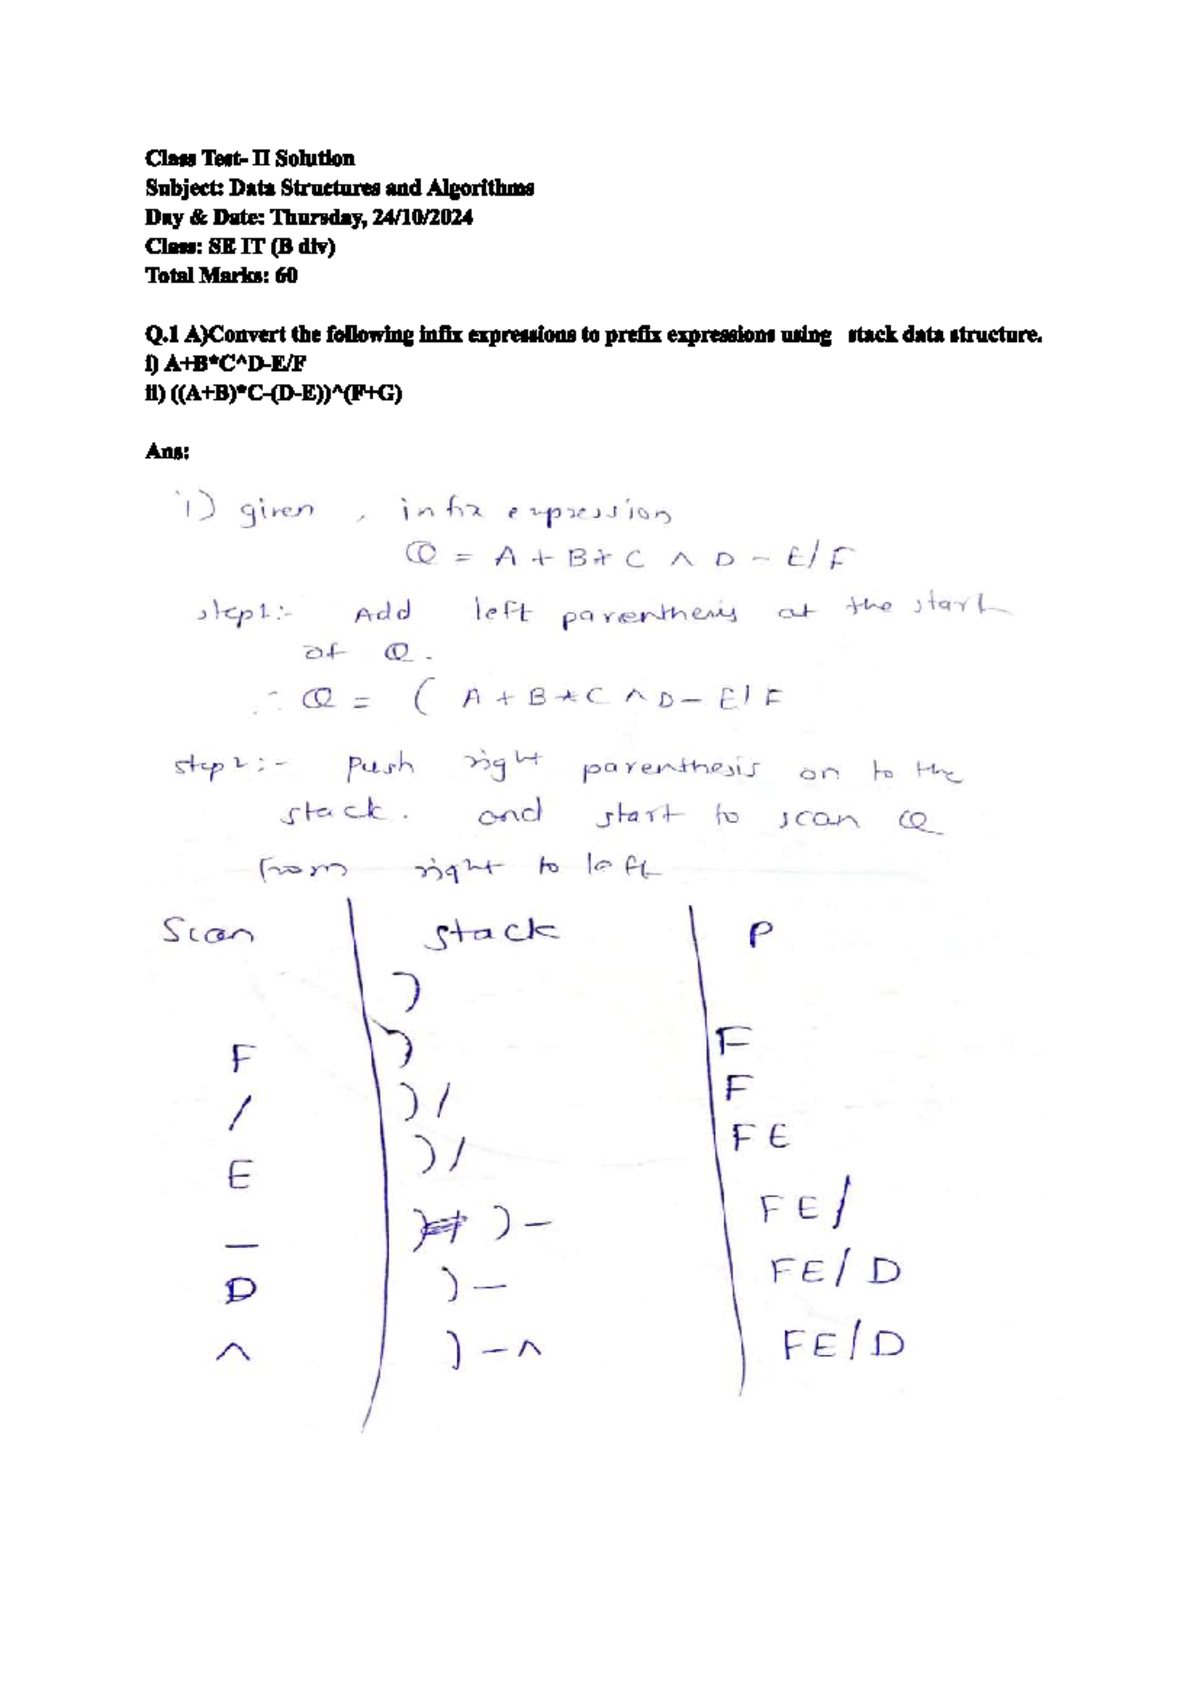 Class Test- II Solution
Subject: Data Structures and Algorithms
Day & Date: Thursday, 24/10/2024
Class: SE IT (B div)
Total Marks: 60
Q.1 A)Convert the following infix expressions to prefix expressions using stack data structure.
i) A+B*C^D-E/F
ii) ((A+B)*C-(D-E))^(F+G)
Ans:
i) given , infix expression
Q = A + B * C ^ D - E/F
step1:- Add left parenthesis at the start
of Q.
∴ Q = ( A + B * C ^ D - E/F
step2:- Push right parenthesis on to the
stack. and start to scan Q
from right to left
Scan stack P
)
F ) F
/ ) / F
E ) / F E
- ) - F E /
D ) - F E / D
^ ) - ^ F E / D